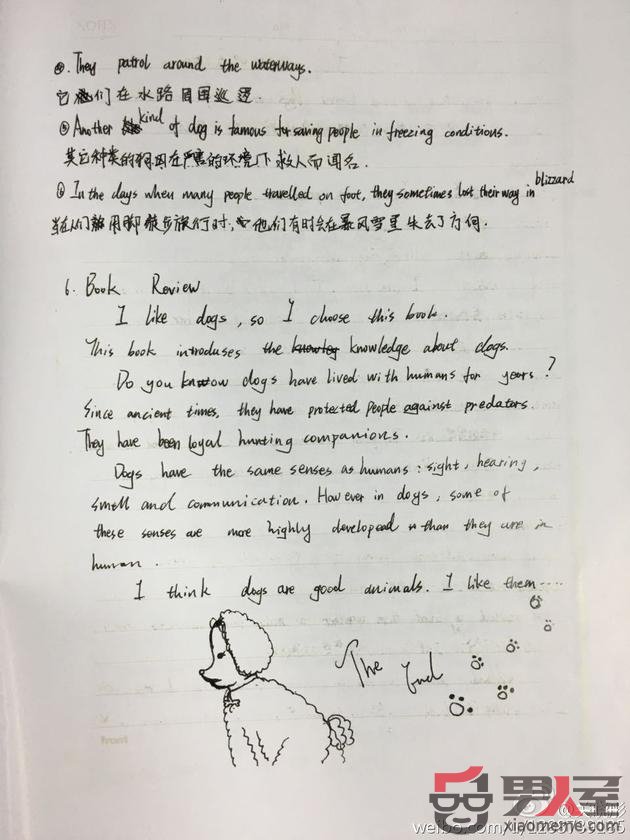 ④. They patrol around the waterways.
它们在水路周围巡逻.
⑤ Another kind of dog is famous for saving people in freezing conditions.
其它种类的狗因在严寒的环境下救人而闻名.
⑥ In the days when many people travelled on foot, they sometimes lost their way in blizzard
当在人们用脚徒步旅行时, 他们有时会在暴风雪里失去了方向.
6. Book Review
I like dogs, so I choose this book.
This book introduses the knowledge about dogs.
Do you know dogs have lived with humans for years?
Since ancient times, they have protected people against predators.
They have been loyal hunting companions.
Dogs have the same senses as humans: sight, hearing,
smell and communication. However in dogs, some of
these senses are more highly developed than they are in
human.
I think dogs are good animals. I like them....
The End
男人军
xiaomeme.com
weibo.com/